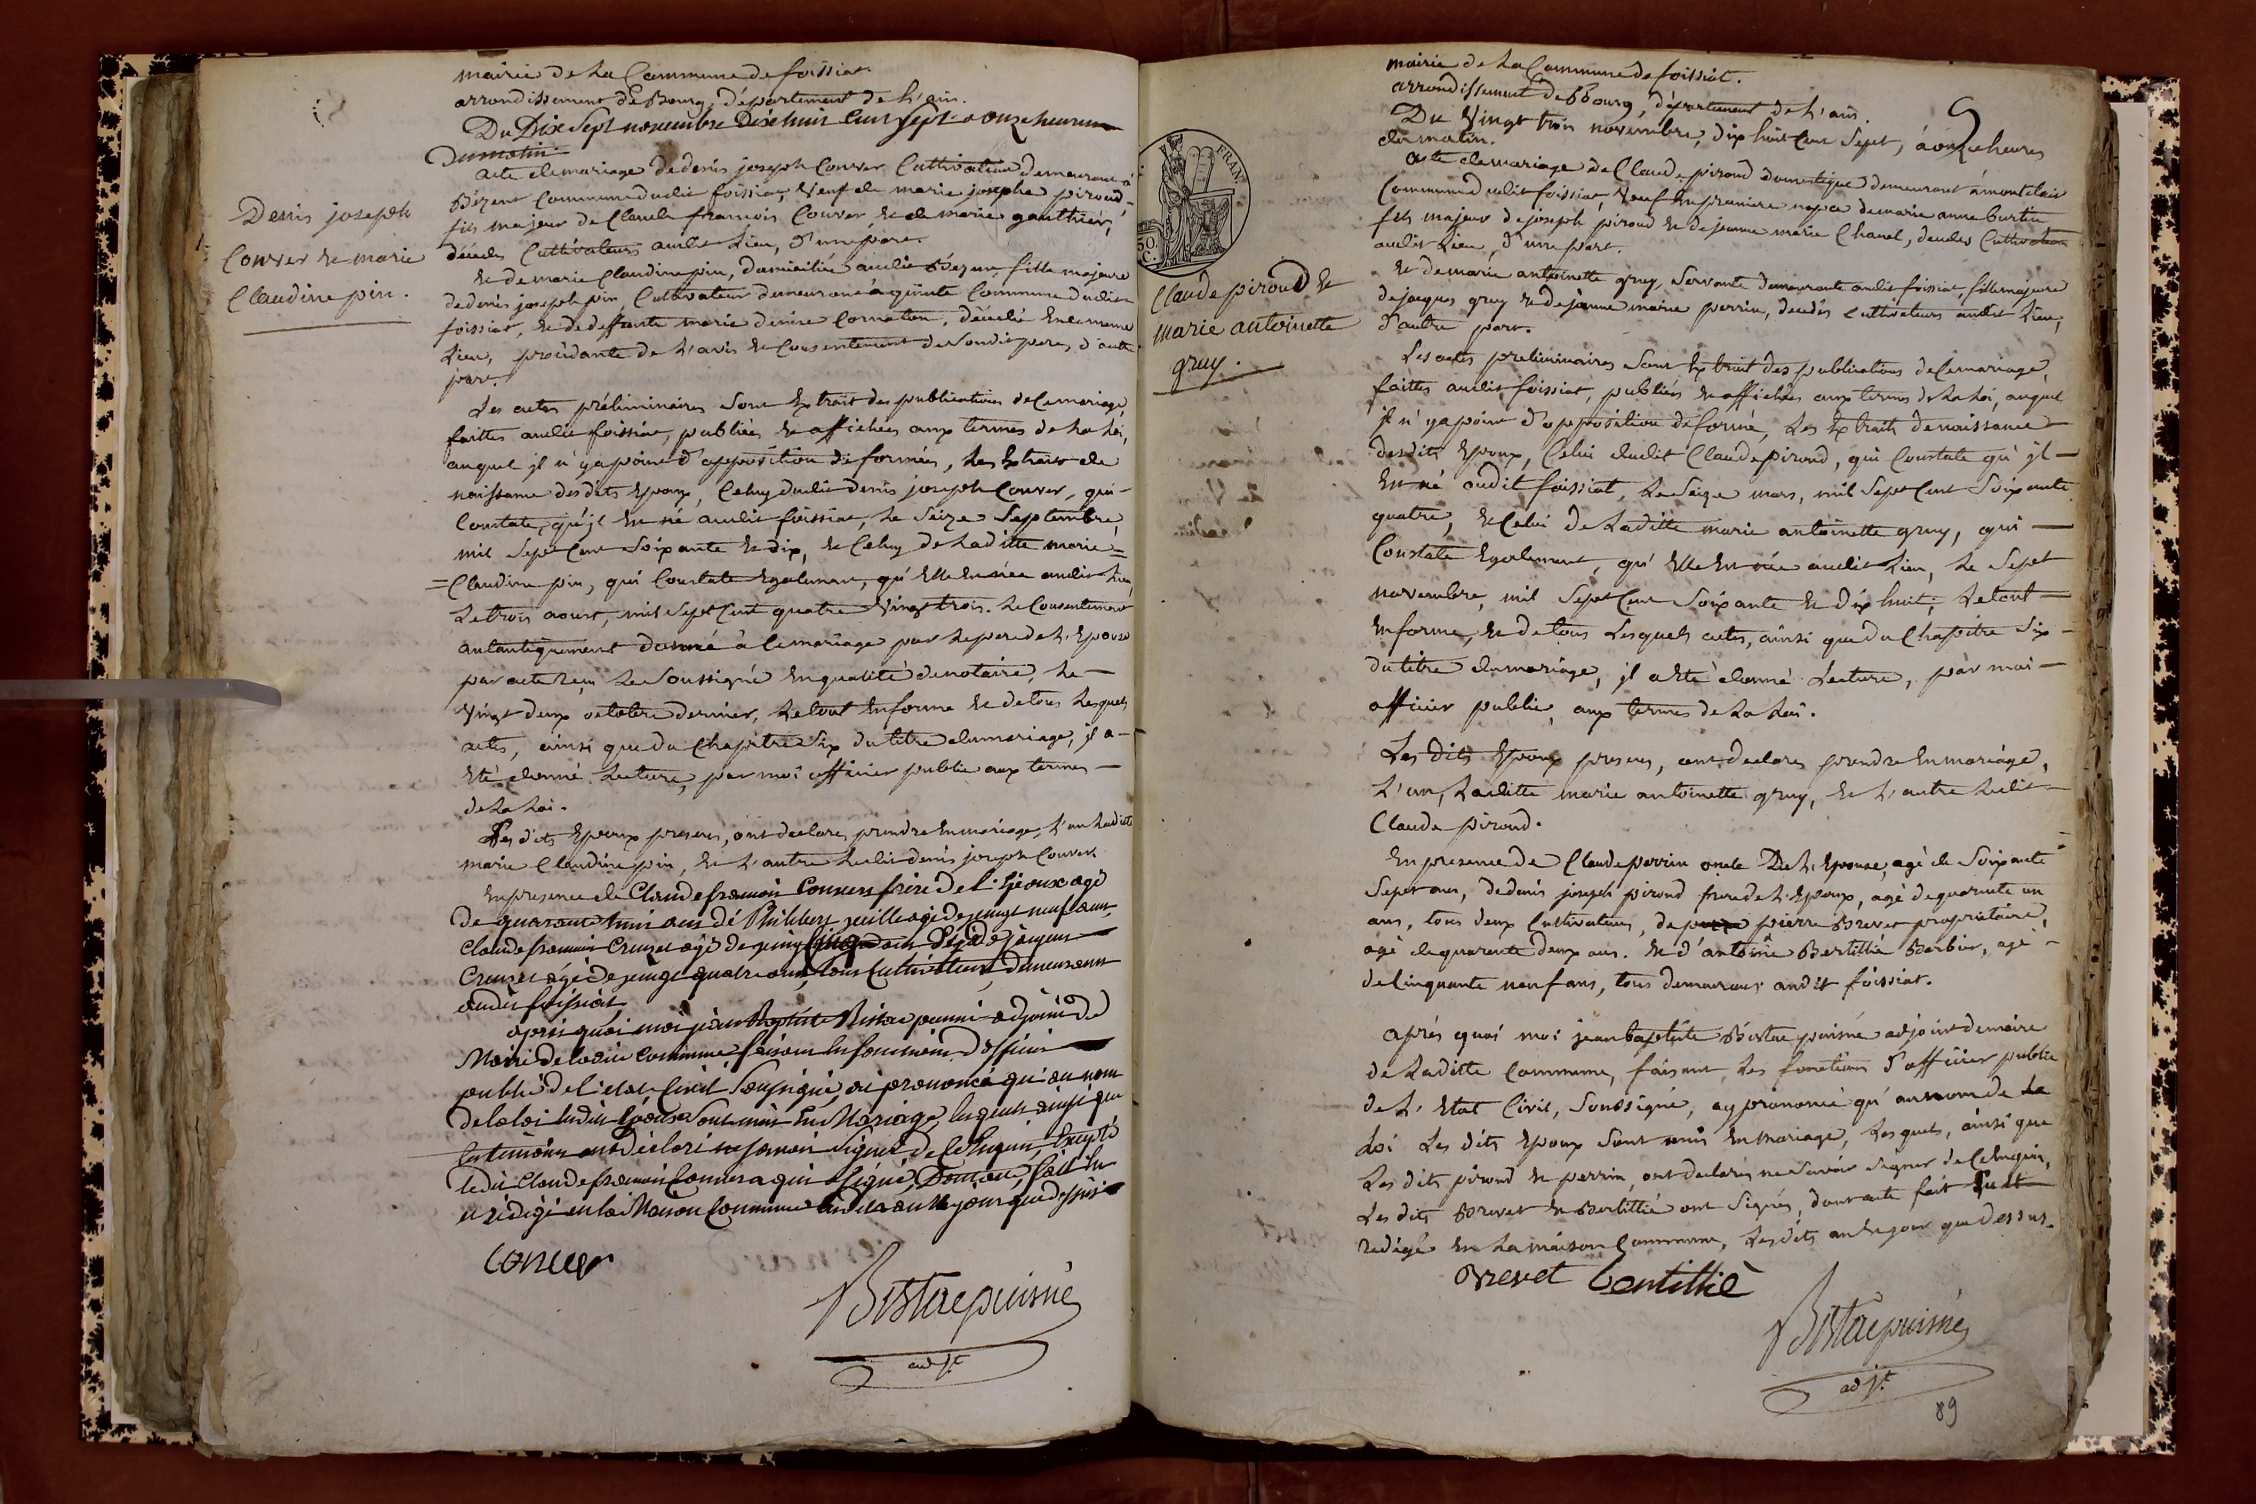 mairie de la Commune de foissiat.
arrondissement de Bourg, département de l'ain.
Du Dix Sept novembre Dix huit Cent Sept a onze heures
Du matin.
acte de mariage de denis joseph Couver Cultivateur demeurant à
Bézent Commune dudit foissiat, veuf de marie josephe piroud,
fils majeur de Claude francois Couver et de marie gauthier,
décédés Cultivateurs audit Lieu, d'une part.
et de marie Claudine pin, domiciliée audit Bézent, fille majeure
de denis joseph pin Cultivateur demeurant à Commune dudit
foissiat, et de deffunte marie denise Cornaton, décédée en le meme
Lieu, procédante de l'avis et Consentement de Sondit pere, d'autre
part.
Denis joseph
Couver et marie
Claudine pin.
Les actes préliminaires Sont extrait des publications de Ce mariage
faittes audit foissiat, publiées et affichées aux termes de la loi,
auquel il n'y a point d'opposition de formées, les extraits de
naissance desdits epoux, Celuy dudit denis joseph Couver, qui
Constate, qu'il est né audit foissiat, le Seize Septembre,
mil Sept Cent Soixante et dix, et Celuy de Laditte marie =
= Claudine pin, qui Constate egalement, qu'elle est née audit Lieu,
Le trois aoust, mil Sept Cent quatre vingt trois. Le Consentement
autantiquement donné à Ce mariage par le pere de l'epouse
par acte reçu Le Soussigné en qualité de notaire, le
vingt deux octobre dernier, Le tout en forme et de tous Lesquels
actes, ainsi que du Chapitre Six du titre du mariage, il a
eté donné Lecture, par moi officier public aux termes
de la loi.
Les dits epoux presens, ont declarés prendre en mariage, l'un Laditte
marie Claudine pin, et l'autre Ledit denis joseph Couver.
en presence de Claude francois Couver frère de l'epoux agé
de quarante trois ans de Philibert agé de vingt neuf ans,
Claude francois Creuzet agé de vingt Cinq ans
Creuzet agé de vingt quatre ans, tous Cultivateurs, demeurants
audit foissiat
après quoi moi jean Baptiste Bistac puiné adjoint de
Maire de ladite Commune faisant les fonctions d'officier
public de l'etat Civil Soussigné, ai prononcé qu'au nom
de la loi lesdits époux Sont unis en Mariage, lesquels ainsi que
les témoins ont déclaré ne savoir signer de Ce enquis, excepté
ledit Claude francois Couver a qui Signé, Dont acte, fait et
rédigé en la Maison Commune lesdits an et jour que dessus
Couver
Bistac puisné
adjt
mairie de la Commune de foissiat.
arrondissement de Bourg, département de l'ain.
Du Vingt trois novembre, dix huit Cent Sept, à onze heures
du matin.
acte de mariage de Claude piroud domestique demeurant à montclair
Commune dudit foissiat, veuf en premiere nopce de marie anne burtin
fils majeur de joseph piroud et de jeanne marie Chanel, décédés Cultivateurs
audit Lieu, d'une part.
et de marie antoinette gruy, Servante demeurante audit foissiat, fille majeure
de jacques gruy et de jeanne marie perrin, decedés Cultivateurs audit Lieu,
d'autre part.
50.
C.
FRAN
Claude piroud et
marie antoinette
gruy.
Les actes preliminaires Sont extrait des publications de Ce mariage,
faittes audit foissiat, publiées et affichées aux termes de la loi, auquel
il n'y a point d'opposition de formé, Les extraits de naissance
desdits epoux, Celui dudit Claude piroud, qui Constate qu'il
est né audit foissiat, Le Seize mars, mil Sept Cent Soixante
quatre, et Celui de Laditte marie antoinette gruy, qui
Constate egalement, qu'elle est née audit Lieu, Le Sept
novembre, mil Sept Cent Soixante et dix huit; Le tout
en forme, et de tous Lesquels actes, ainsi que du Chapitre Six
du titre du mariage, il a eté donné Lecture, par moi
officier public, aux termes de la loi.
Les dits epoux presens, ont declarés prendre en mariage,
l'un, Laditte marie antoinette gruy, et l'autre Ledit
Claude piroud.
en presence de Claude perrin oncle De l'epouse, agé de Soixante
Sept ans, de denis joseph piroud frere de l'epoux, agé de quarante un
ans, tous deux Cultivateurs, de pierre Brevet propriétaire,
agé de quarante deux ans. et d'antoine Bertillié Barbier, agé
de Cinquante neuf ans, tous demeurans audit foissiat.
après quoi moi jean baptiste Bistac puisné adjoint de maire
de Laditte Commune, faisant Les fonctions d'officier public
de l'etat Civil, Soussigné, ay prononcé qu'au nom de La
Loi Les dits epoux Sont unis en mariage, Lesquels, ainsi que
Les dits piroud et perrin, ont declarés ne Savoir signer de Ce enquis,
Les dits Brevet et Bertillié ont Signés, dont acte fait et
redigé en La maison Commune, Lesdits an et jour que dessus.
Brevet Bentillié
Bistac puisné
adjt.
89